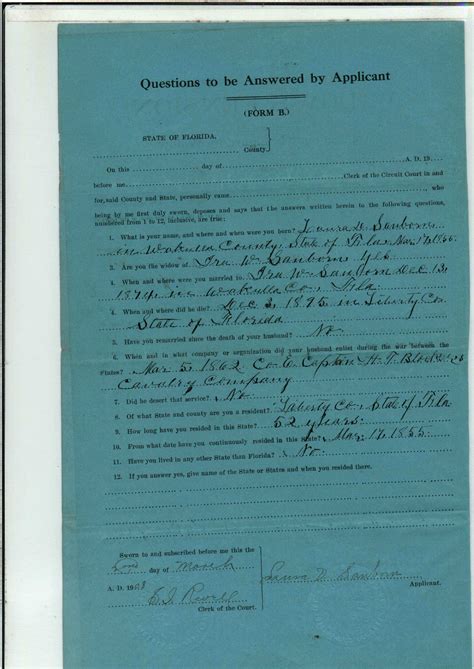 Questions to be Answered by Applicant
(FORM B.)
STATE OF FLORIDA,
County.
On this day of A. D. 19
before me Clerk of the Circuit Court in and
for said County and State, personally came who
being by me first duly sworn, deposes and says that the answers written herein to the following questions,
numbered from 1 to 12, inclusive, are true:
1. What is your name, and where and when were you born? Laura D. Sanborn
Wakulla County, State of Fla Mar. 17,
3. Are you the widow of Ira W. Sanborn yes
2. When and where were you married to Ira W. Sanborn Dec 13,
1874 in Wakulla Co., Fla.
4. When and where did he die? Dec 2, 1895 in Liberty Co.
State of Florida
5. Have you remarried since the death of your husband? No
6. When and in what company or organization did your husband enlist during the war between the
States? Mar 5, 1862 Co E Captain
Cavalry Company
7. Did he desert that service? No
8. Of what State and county are you a resident? Liberty Co., State of Fla
9. How long have you resided in this State? 52 years.
10. From what date have you continuously resided in this State? Mar. 17, 1855
11. Have you lived in any other State than Florida? No.
12. If you answer yes, give name of the State or States and when you resided there.
Sworn to and subscribed before me this the
2nd day of March
A. D. 1908
Laura D. Sanborn
Applicant.
Clerk of the Court.